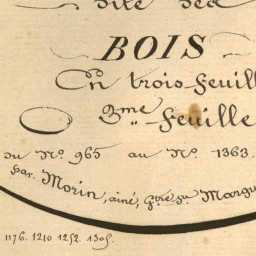 dite des
BOIS
En trois feuill
2me. feuille
du No. 965 au No. 1363.
par Morin, ainé, Gtre. sr. Margu
1176. 1210 1252. 1305.